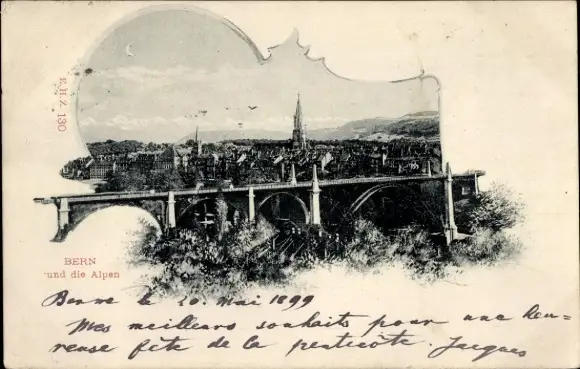 F.H.Z. 130
BERN
und die Alpen
Berne le 20. Mai 1899
Mes meilleurs souhaits pour une heu-
reuse fête de la pentecôte. Jacques